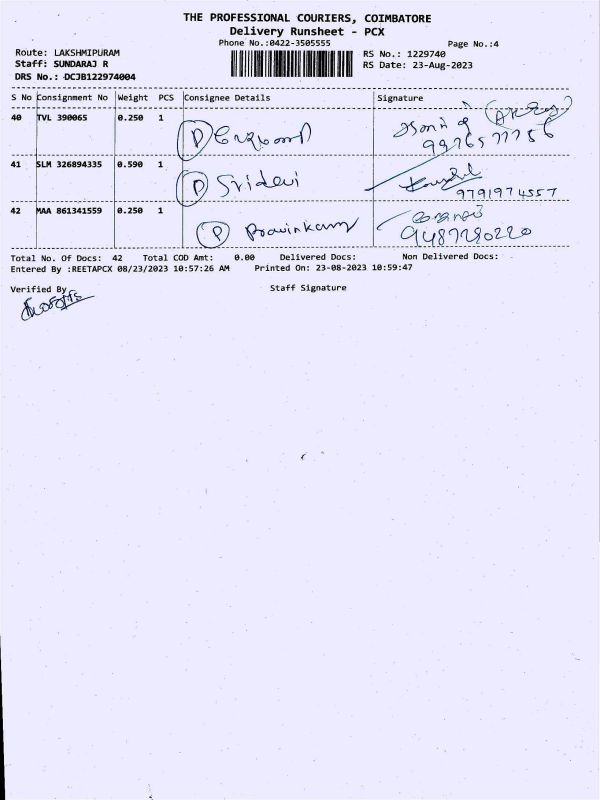 THE PROFESSIONAL COURIERS, COIMBATORE
Delivery Runsheet - PCX
Phone No.:0422-3505555
Page No.:4
Route: LAKSHMIPURAM
RS No.: 1229740
Staff: SUNDARAJ R
RS Date: 23-Aug-2023
DRS No.: DCJB122974004
S No Consignment No Weight PCS Consignee Details Signature
40 TVL 390065 0.250 1 P
41 SLM 326894335 0.590 1 P Sridevi
9791974557
42 MAA 861341559 0.250 1 P Pravinkumar
9487280220
Total No. Of Docs: 42 Total COD Amt: 0.00 Delivered Docs: Non Delivered Docs:
Entered By :REETAPCX 08/23/2023 10:57:26 AM Printed On: 23-08-2023 10:59:47
Verified By
Staff Signature